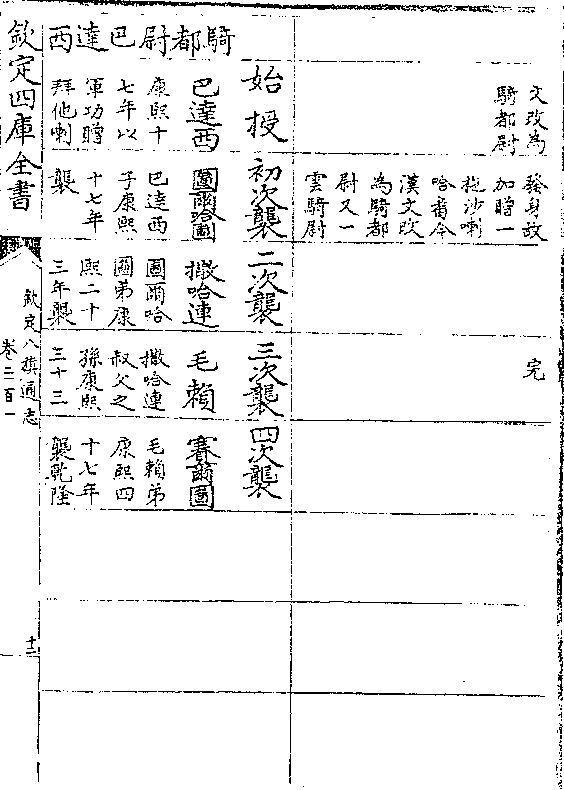 文改為
騎都尉
發身故
加贈一
拖沙喇
哈番今
漢文改
為騎都
尉又一
雲騎尉
完
騎都尉巴達西
始授
巴達西
康熙十
七年以
軍功贈
拜他喇
初次襲
圖爾哈圖
巴達西
子康熙
十七年
襲
二次襲
撒哈連
圖爾哈
圖弟康
熙二十
三年襲
三次襲
毛賴
撒哈連
叔父之
孫康熙
三十三
四次襲
賽爾圖
毛賴弟
康熙四
十七年
襲乾隆
欽定四庫全書
欽定八旗通志
卷二百一
十二